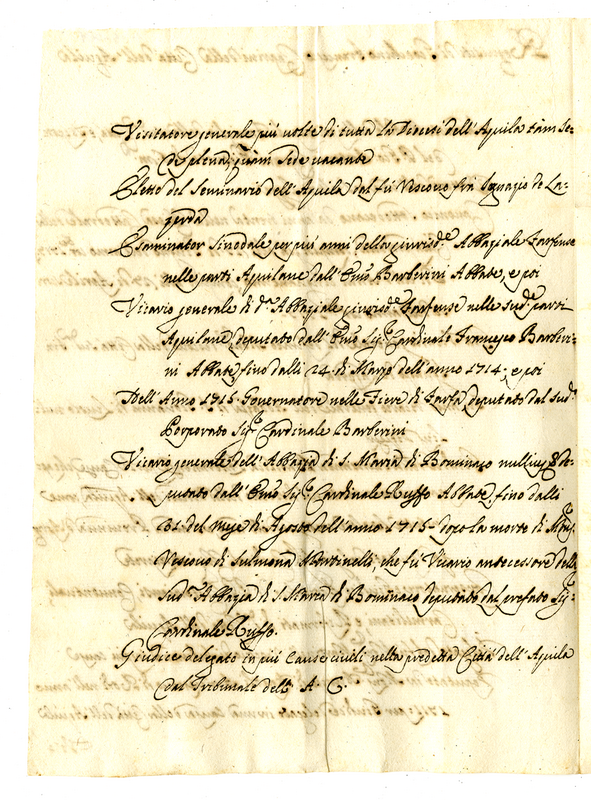 Visitatore generale più volte di tutta la Diocesi dell'Aquila tàm Se-
de plena, quàm Sede vacante
Eletto del Seminario dell'Aquila dal fù Vescovo frà Ignazio de La-
zerda
Esaminator Sinodale per più anni della giurisd.e Abbaziale Farfense
nelle parti Aquilane dall'Emo Barberini Abbate, e poi
Vicario generale di d.a Abbaziale giurisd.e Farfense nelle sud.e parti
Aquilane, deputato dall'Emo Sig.r Cardinale Francesco Barberi-
ni Abbate, fino dalli 24. di Marzo dell'anno 1714, e poi
Dell'Anno 1715 Governatore nelle Fiere di Farfa deputato dal sud.o
Porporato Sig.r Cardinale Barberini
Vicario generale dell'Abbazia di S. Maria di Bominaco nullius de-
putato dall'Emo Sig.r Cardinale Ruffo Abbate, fino dalli
31 del mese di Agosto dell'anno 1715 dopo la morte di Mons.r
Vescovo di Sulmona Martinelli, che fù Vicario antecessore della
Sud.a Abbazia di S. Maria di Bominaco deputato dal prefato Sig.r
Cardinale Ruffo.
Giudice delegato in più Cause civili nella predetta Città dell'Aquila
dal Tribunale dell' A. C.